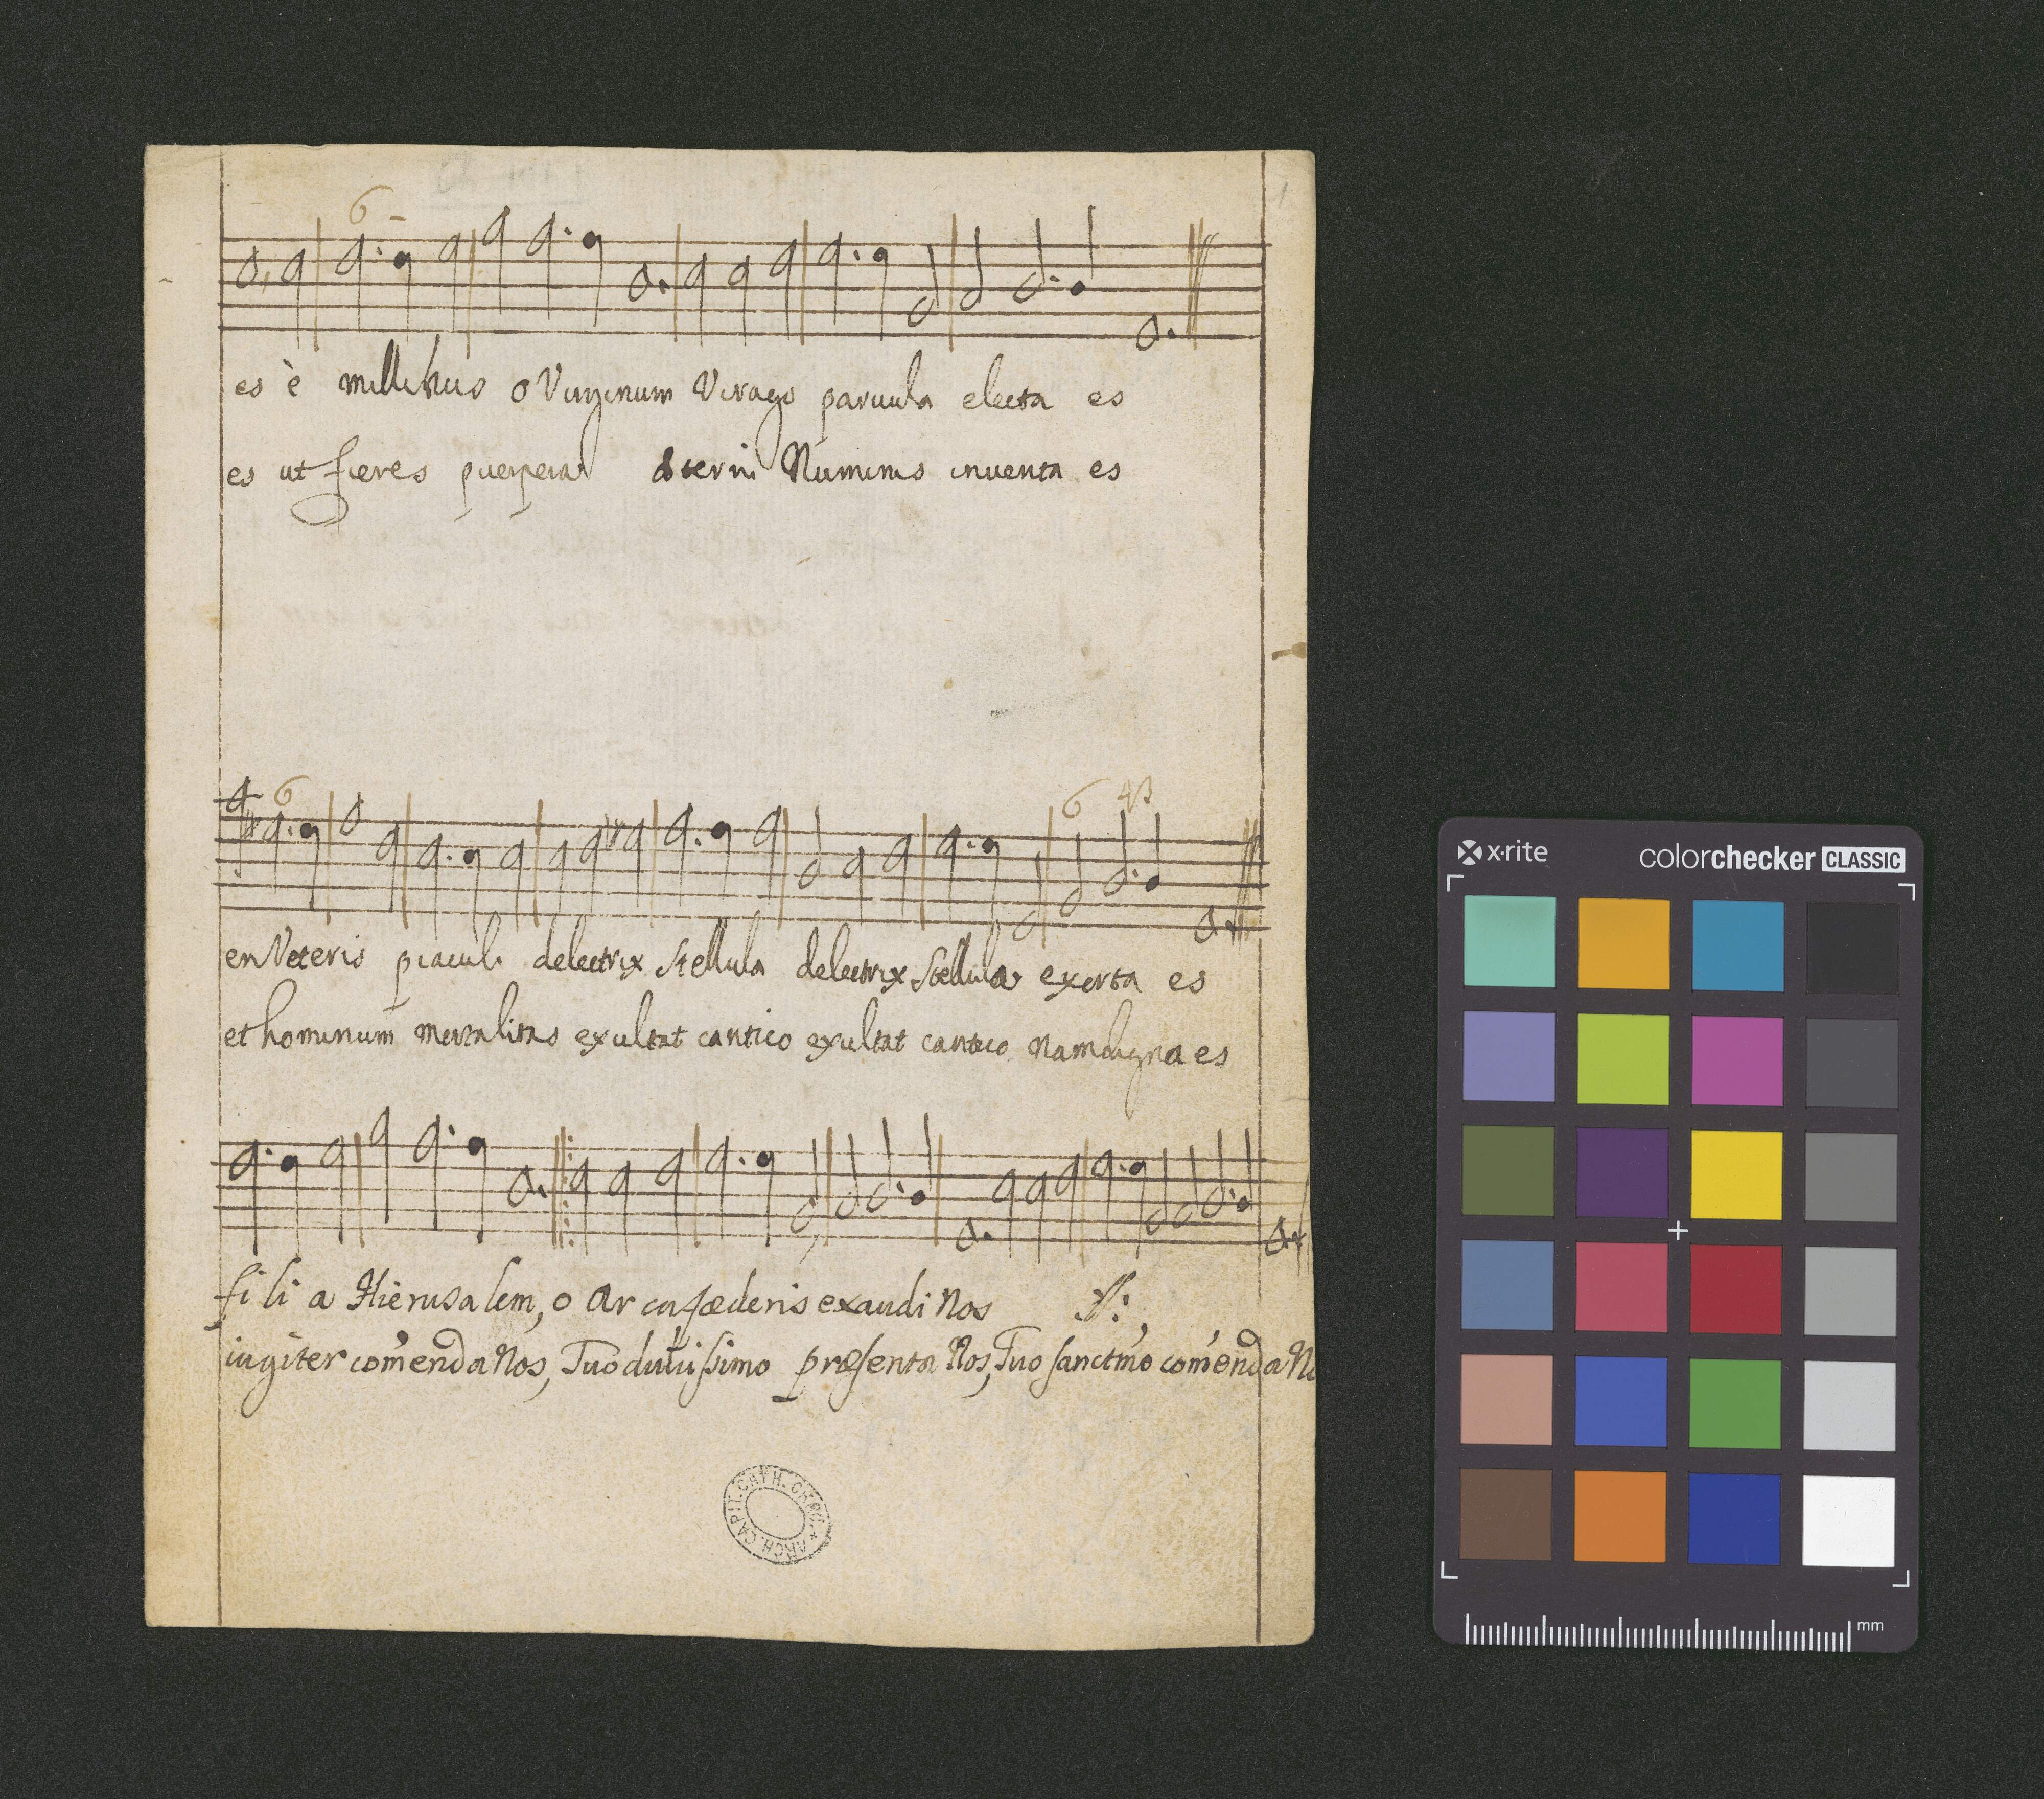 1
6
es è millibus o Virginum Virago parvula electa es
es ut fieres puerpera æterni Numinis inventa es
6 6 43
en Veteris piaculi delectrix Stellula delectrix Stellula exorta es
et hominum mortalitas exultat cantico exultat cantico nam digna es
fi li a Hierusalem, o Arca fœderis exaudi Nos :ǁ:
iugiter com̃enda Nos, Tuo dulcissimo præsenta Nos, Tuo sanct̃mo com̃enda No
ARCH. CAPIT. CATH.
x·rite
colorchecker CLASSIC
mm